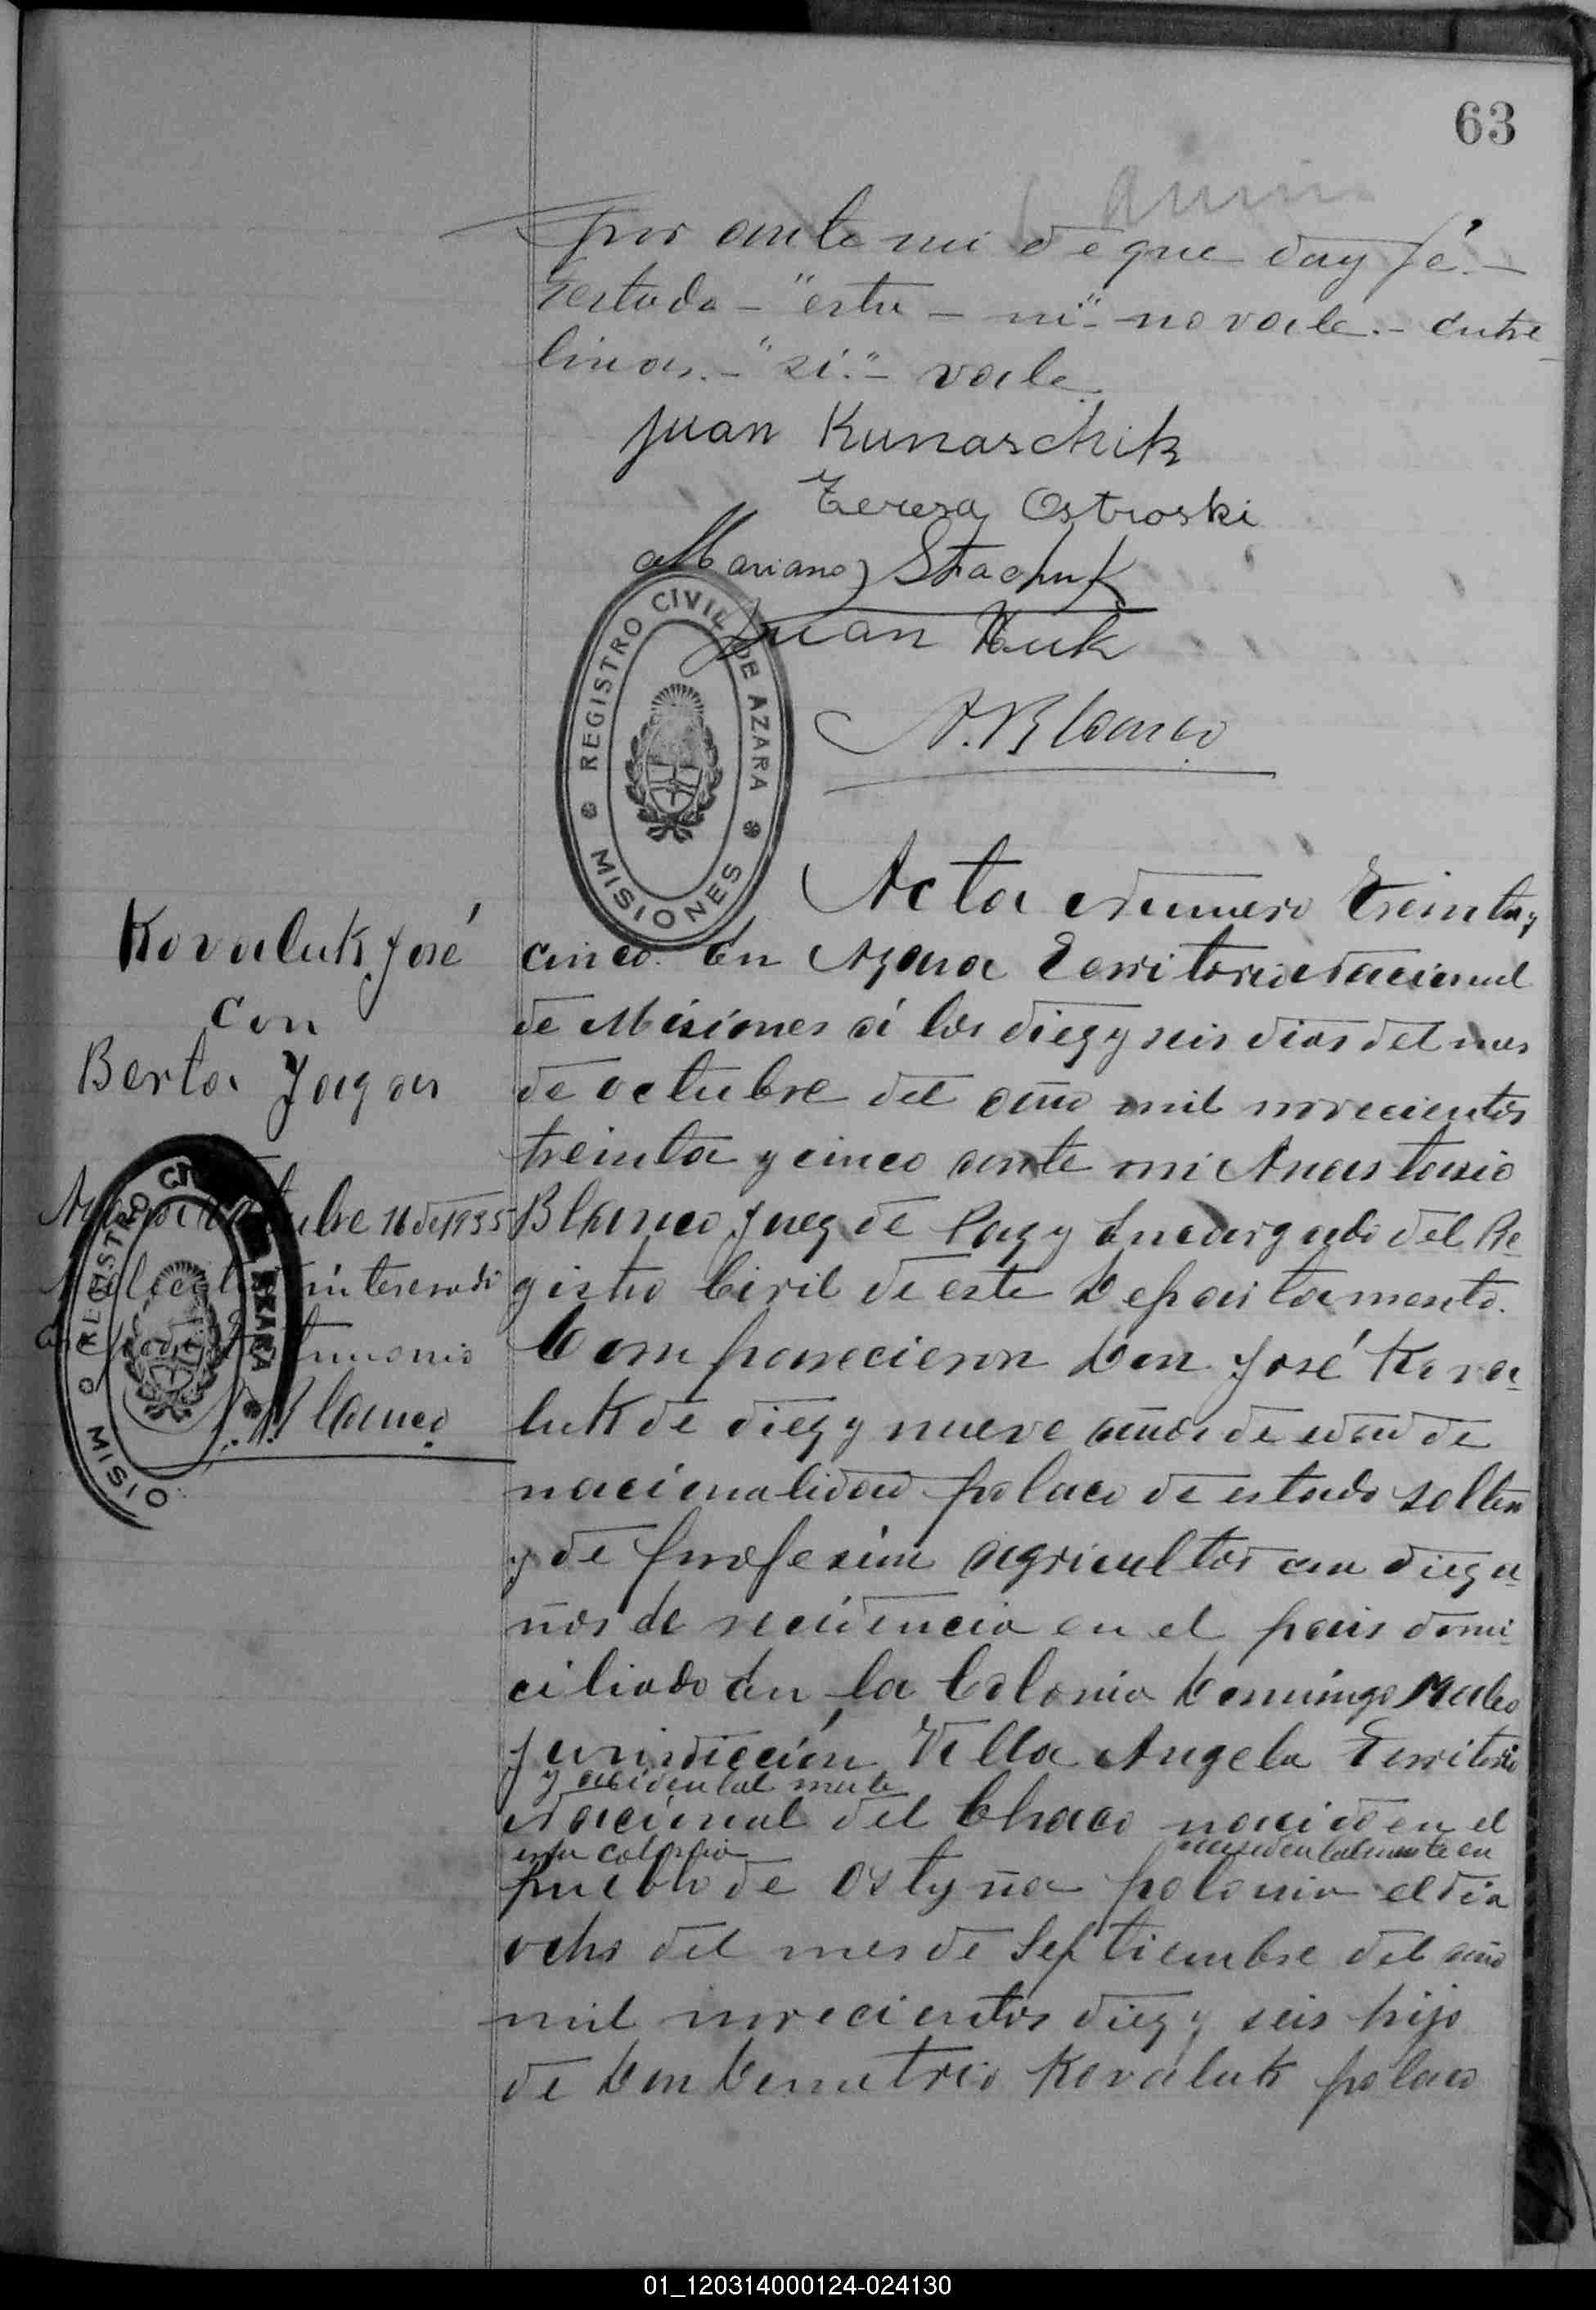 63
por ante mi de que doy fé.-
Testado - "estu - ni" - no vale.- Entre
lineas.- "si".- vale.
Juan Kunaschik
Teresa Ostroski
Mariano Stachuk
Juan Kuk
A. Blanco
REGISTRO CIVIL DE AZARA
MISIONES
Kovaluk José
con
Berta Jagas
Octubre 16 de 1935
interesado
Matrimonio
A. Blanco
REGISTRO CI AZARA
MISIO
Acta Número Treinta y
cinco. En Azara Territorio Nacional
de Misiones á los diez y seis dias del mes
de octubre del año mil novecientos
treinta y cinco ante mi Anastasio
Blanco Juez de Paz y Encargado del Re-
gistro Civil de este Departamento.
Comparecieron Don José Kova-
luk de diez y nueve años de edad de
nacionalidad polaco de estado soltero
y de profesión agricultor con diez a-
ños de recidencia en el pais domi-
ciliado en la Colonia Domingo Matheo
Jurisdicción Villa Angela Territorio
y accidental mente
Nacional del Chaco nacido en el
esta colonia accidentalmente en
pueblo de Ostyña polonia el dia
ocho del mes de Septiembre del año
mil novecientos diez y seis hijo
de Don Demetrio Kovaluk polaco
01_120314000124-024130